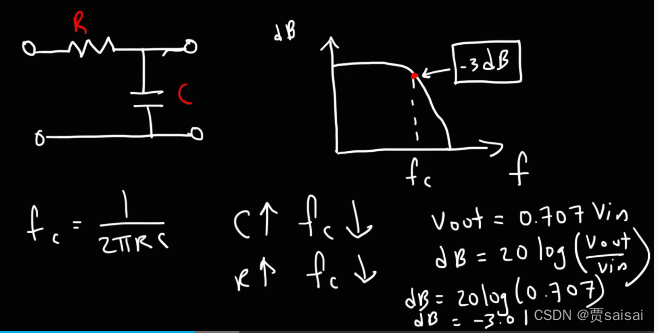 R
C
dB
-3dB
fc
f
fc = 1/2πRC
C↑ fc↓
R↑ fc↓
Vout = 0.707 Vin
dB = 20 log(Vout/Vin)
dB = 20log(0.707)
dB = -3.01
CSDN @贾saisai